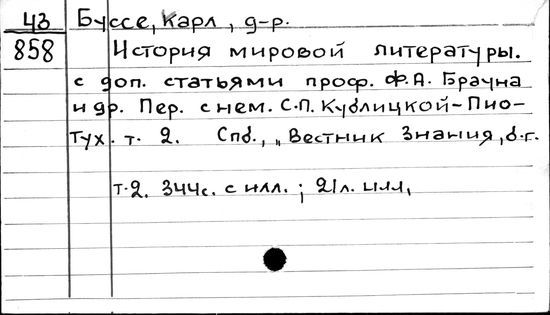 43 Буссе, Карл, д-р.
858 История мировой литературы.
с доп. статьями проф. Ф.А. Брауна
и др. Пер. с нем. С.П. Кублицкой-Пио-
тух. т. 2. Спб., „Вестник Знания, б.г.
т.2. 344с. с илл.; 21л. илл,